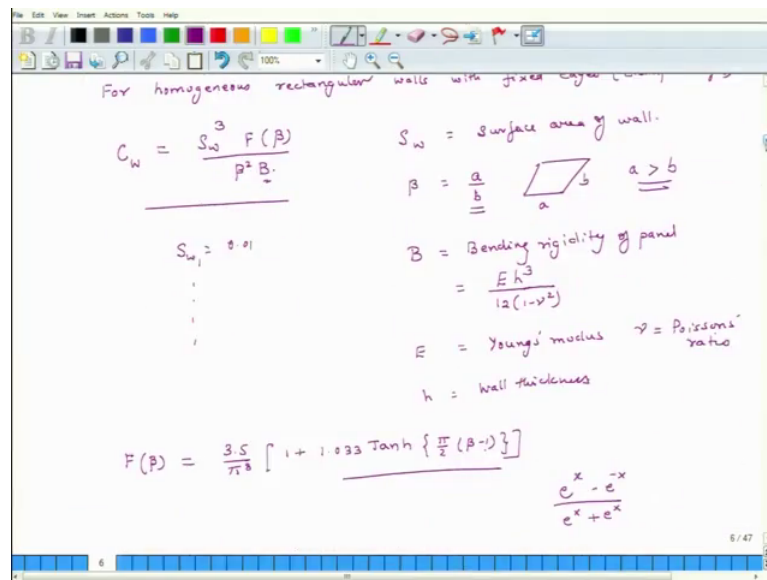 File Edit View Insert Actions Tools Help
B I
100%
For homogeneous rectangular walls with fixed edges
C_w = S_w^3 F(β) / β^2 B.
S_w = Surface area of wall.
β = a/b a b a > b
S_w1 = 0.01
B = Bending rigidity of panel
= E h^3 / 12(1-ν^2)
E = Youngs' modus ν = Poissons' ratio
h = wall thickness
F(β) = 3.5/π^8 [ 1 + 1.033 Tanh { π/2 (β-1) } ]
e^x - e^-x / e^x + e^x
6 / 47
6